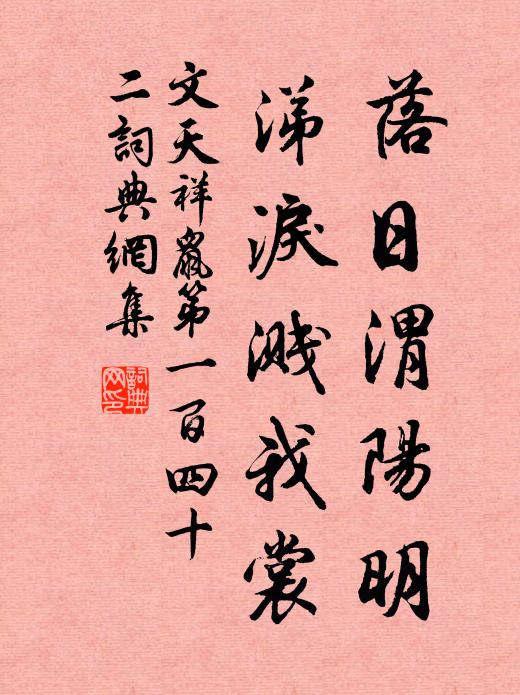 落日渭陽明
涕淚濺我裳
文天祥鼠第一百四十
二詞典網集
詞典網印